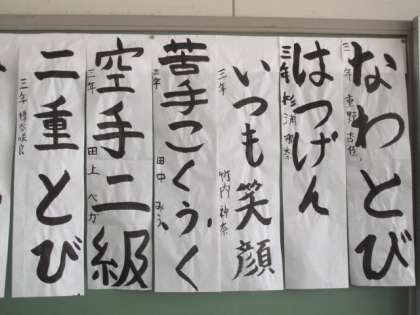 なわとび
三年
はつげん
三年 杉浦
いつも笑顔
三年 竹内 神奈
苦手こくふく
三年 田中 みう
空手二級
三年 田上
二重とび
三年